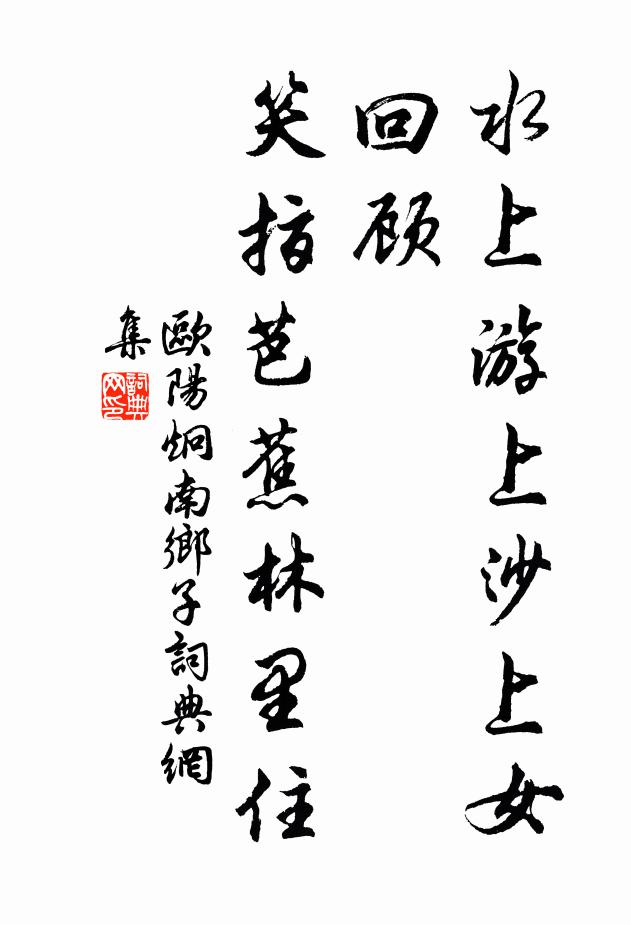 水上游上沙上女
回顾
笑指芭蕉林里住
歐陽炯南鄉子詞典網
集
詞典网印